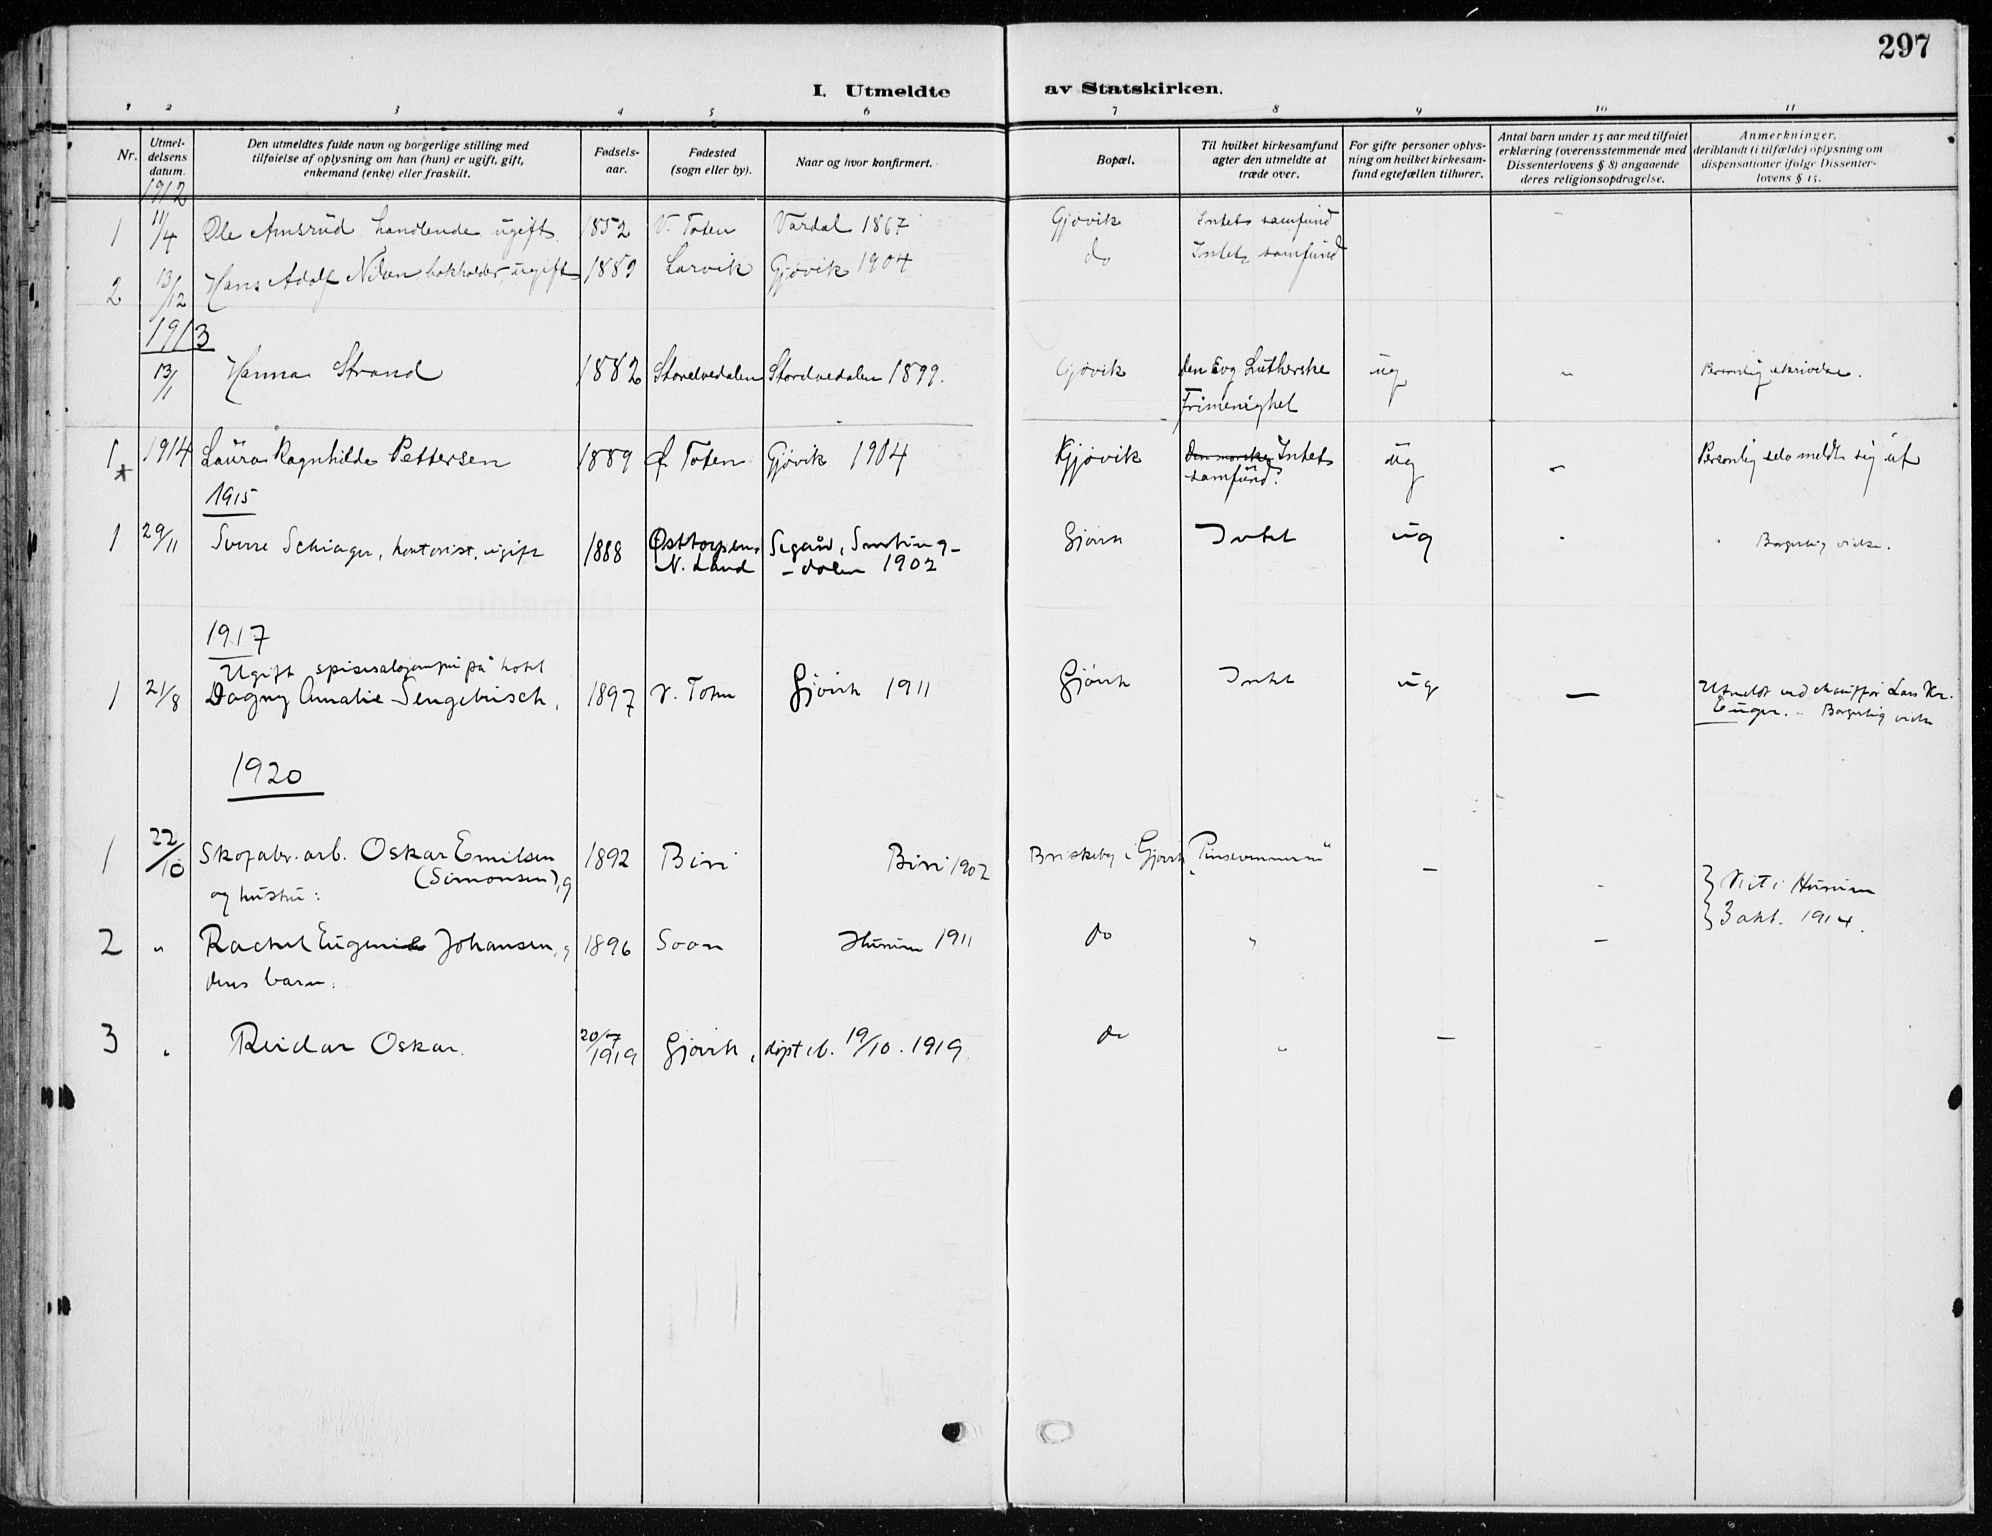 297
I. Utmeldte av Statskirken.
1 2 3 4 5 6 7 8 9 10 11
Nr. Utmeldelsens datum. Den utmeldtes fulde navn og borgerlige stilling med tilføielse af oplysning om han (hun) er ugift, gift, enkemand (enke) eller fraskilt. Fødselsaar. Fødested (sogn eller by). Naar og hvor konfirmert. Bopæl. Til hvilket kirkesamfund agter den utmeldte at træde over. For gifte personer oplysning om hvilket kirkesamfund egtefællen tilhører. Antal barn under 15 aar med tilføiet erklæring (overensstemmende med Dissenterlovens § 8) angaaende deres religionsopdragelse. Anmerkninger, deriblandt (i tilfælde) oplysning om dispensationer ifølge Dissenterlovens § 15.
1912
1 11/4 Ole Amsrud handlende ugift 1852 V. Toten Vardal 1867 Gjøvik Intet samfund
2 13/12 Hans Adolf Nilsen bokholder, ugift 1889 Larvik Gjøvik 1904 do Intet samfund
1913
13/1 Hanna Strand 1882 Storelvedalen Storelvedalen 1899. Gjøvik den Evg Lutherske ug " Personlig
Frimenighet
1 x 1914 Laura Ragnhilde Pettersen 1889 Ø. Toten Gjøvik 1904 Gjøvik Den norske Intet ug - Personlig selv meldt sig ut
samfund.
1915
1 29/11 Sverre Schiager, kontorist, ugift 1888 Østtorpen, Gjøvik Intet ug Borgerlig vielse.
N. Land -dalen 1902
1917
Ugift på hotel
1 21/8 Dagny Amalie Sengebusch, 1897 V. Toten Gjøvik 1911 Gjøvik Intet ug — Utmeldt ved chauffør Lars Kr.
Enger. - Borgerlig vielse
1920
1 22/10 Skofabr. arb. Oskar Emilsen 1892 Biri Biri 1902 Briskeby i Gjøvik Pinsevennerne -
(Simonsen), g
og hustru: } Viet i Hurum
} 3 okt. 1914.
2 " Rachel Eugenie Johansen, g 1896 Soon Hurum 1911 do " -
deres barn:
3 " Reidar Oskar. 20/7 1919 Gjøvik, døpt 19/10. 1919. do " -